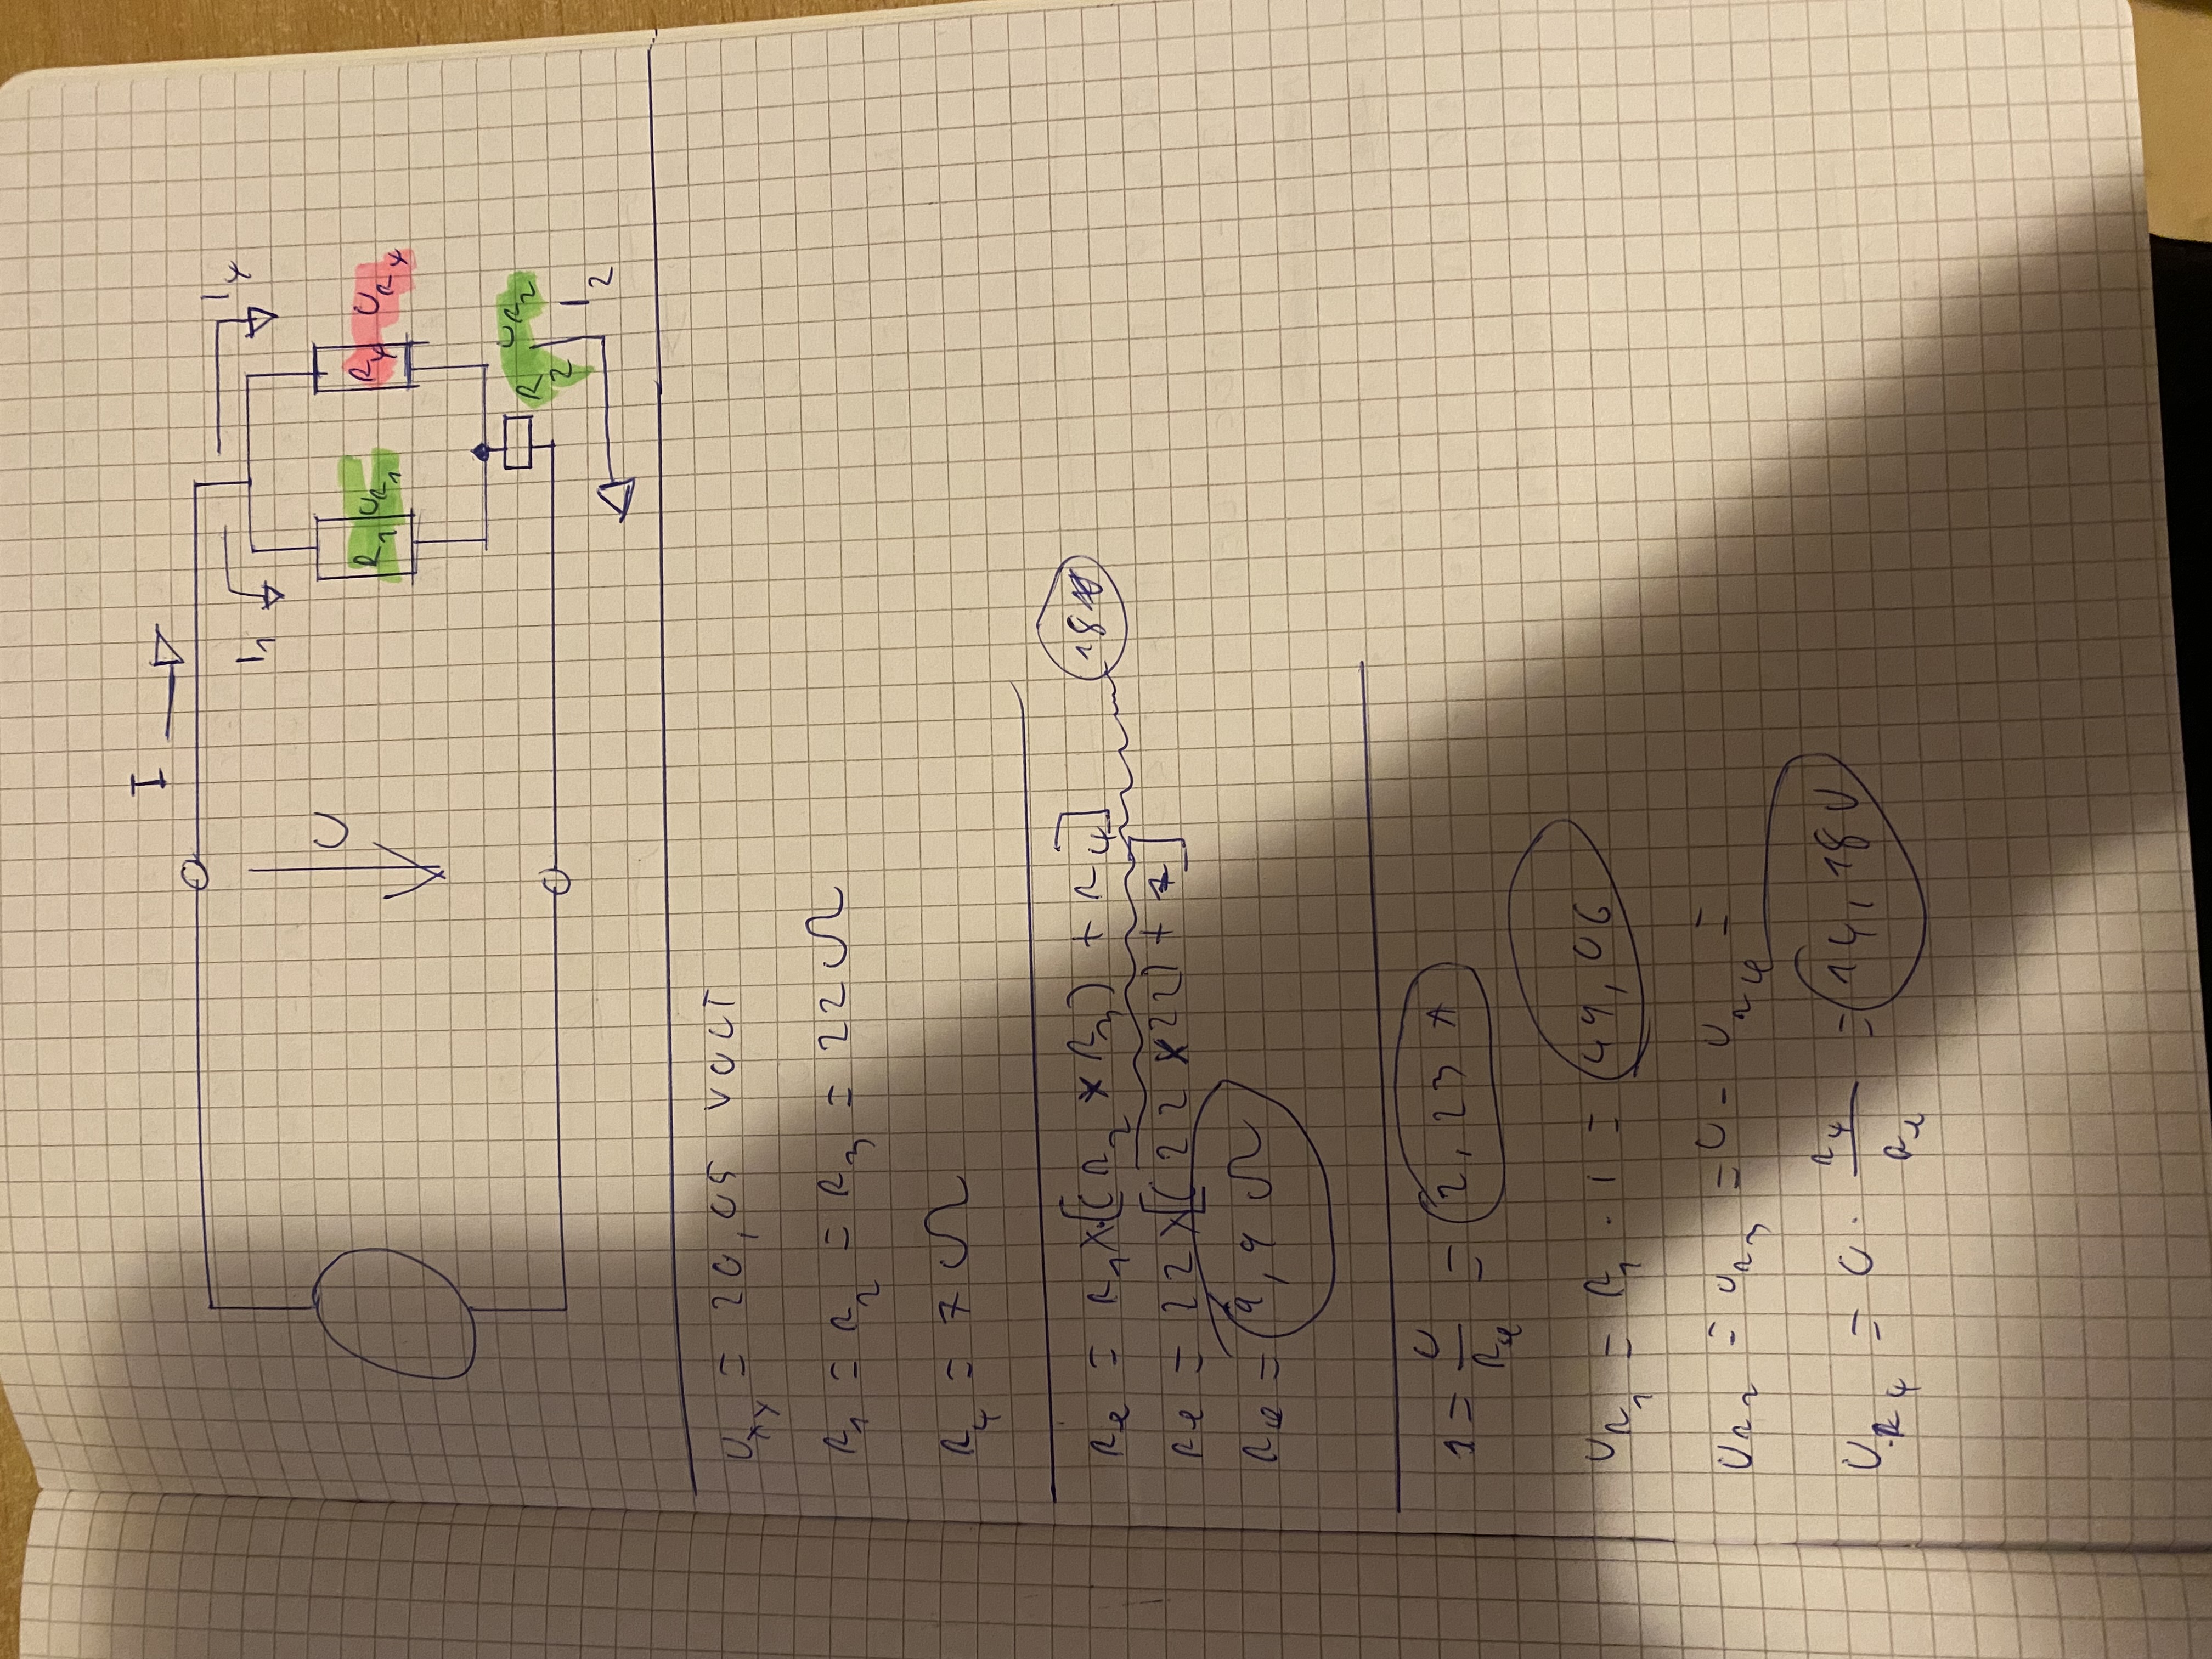 I
I₁ I₄
U
R₁ U_R₁ R₄ U_R₄
R₂ U_R₂
I₂
U_xy = 20,05 VOLT
R₁ = R₂ = R₃ = 22 Ω
R₄ = 7 Ω
Re = R₁ × [(R₂ × R₃) + R₄] 18
Re = 22 × [(22 × 22) + 7]
Re = 9,9 Ω
I = U / Re = 2,23 A
U_R₁ = R₁ · I = 49,06
U_R₂ = U_R₃ = U - U_R₄ =
U_R₄ = U · R₄ / Re = 14,18 V